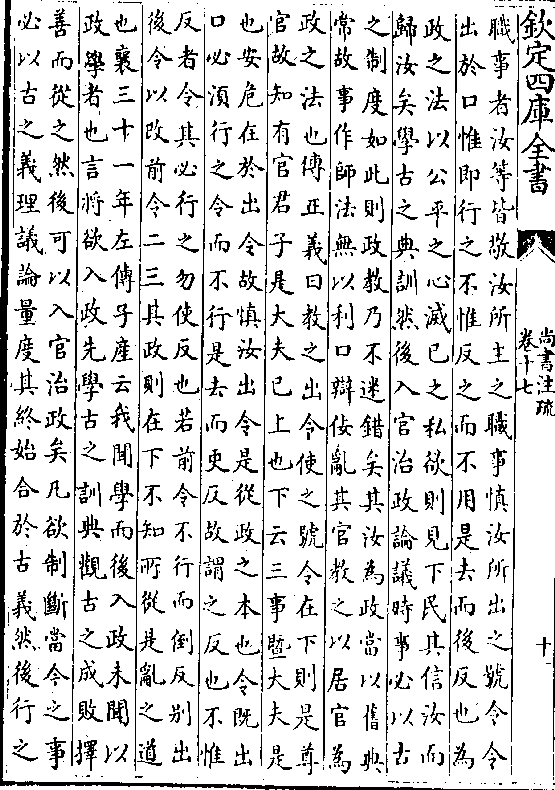 欽定四庫全書
尚書注疏
卷十七
十
職事者汝等皆敬汝所主之職事慎汝所出之號令令
出於口惟即行之不惟反之而不用是去而後反也為
政之法以公平之心滅己之私欲則見下民其信汝而
歸汝矣學古之典訓然後入官治政論議時事必以古
之制度如此則政教乃不迷錯矣其汝為政當以舊典
常故事作師法無以利口辯佞亂其官教之以居官為
政之法也傳正義曰教之出令使之號令在下則是尊
官故知有官君子是大夫已上也下云三事曁大夫是
也安危在於出令故慎汝出令是從政之本也令既出
口必須行之令而不行是去而更反故謂之反也不惟
反者令其必行之勿使反也若前令不行而倒反別出
後令以改前令二三其政則在下不知所從是亂之道
也襄三十一年左傳子產云我聞學而後入政未聞以
政學者也言將欲入政先學古之訓典觀古之成敗擇
善而從之然後可以入官治政矣凡欲制斷當今之事
必以古之義理議論量度其終始合於古義然後行之